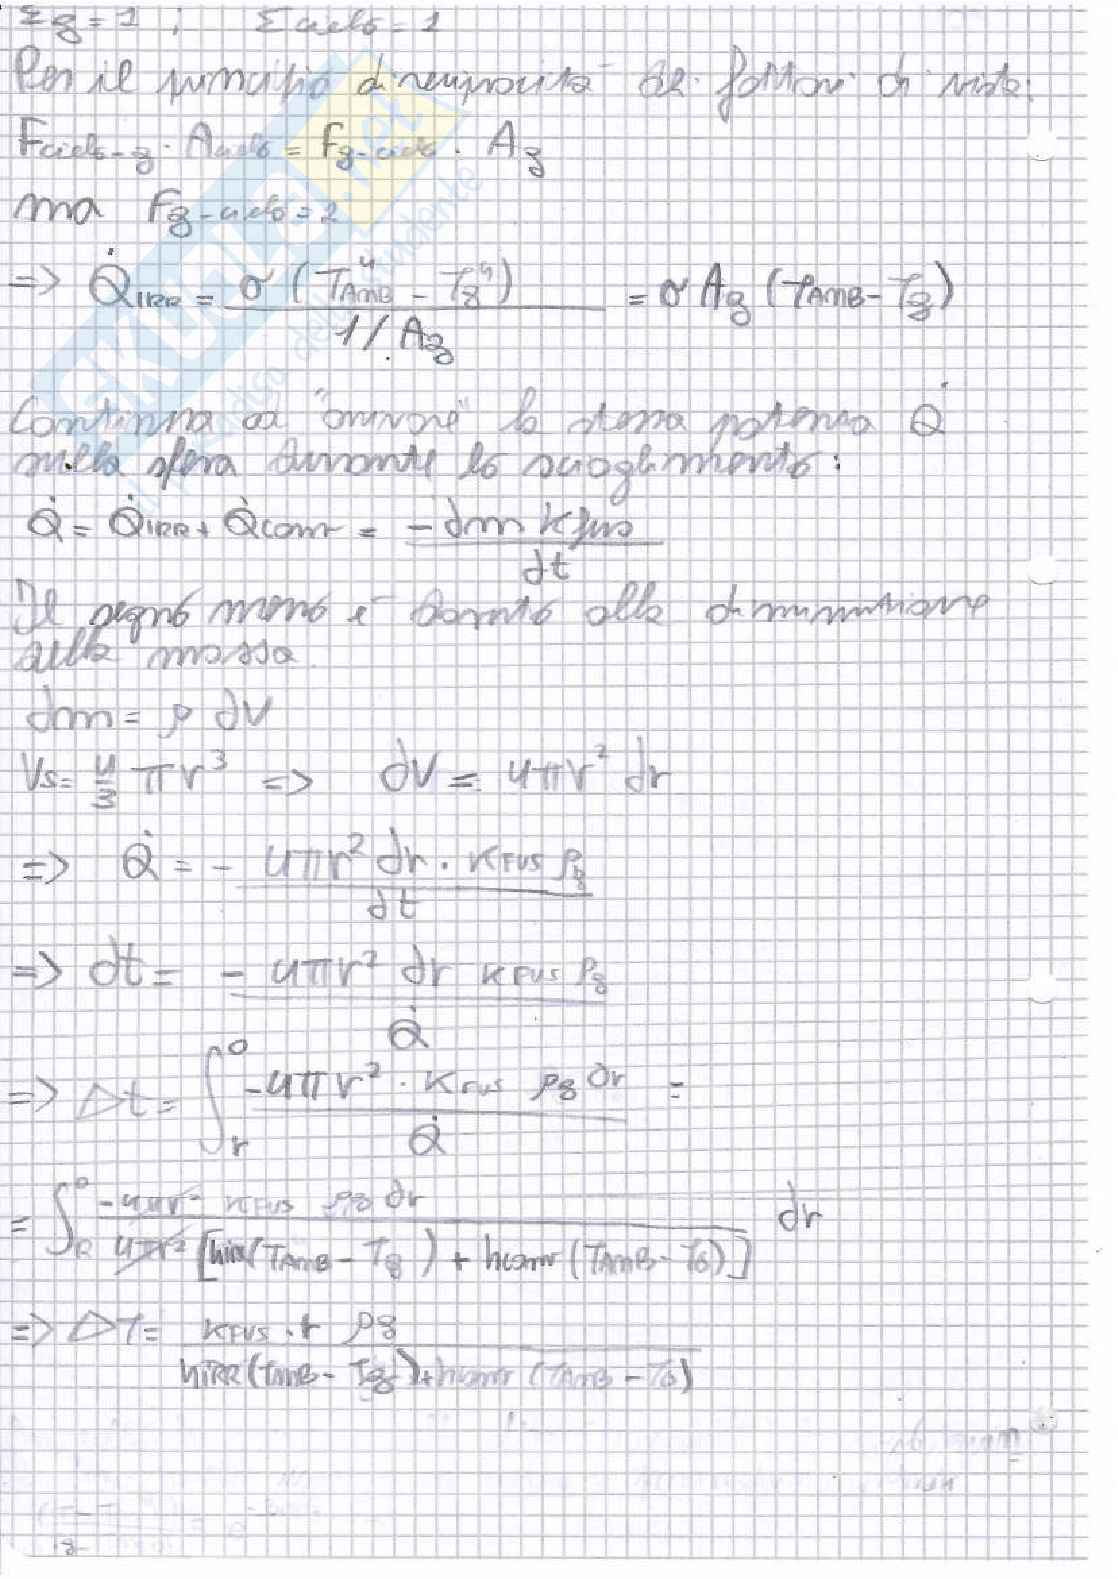 Σg = 1 ; Σcielo = 1
Per il principio di reciprocità dei fattori di vista:
Fcielo-g · Acielo = Fg-cielo · Ag
ma Fg-cielo = 1
=> Q̇IRR = σ (TAMB⁴ - Tg⁴) / 1/Ag = σ Ag (TAMB - Tg)
Continua ad "arrivare" la stessa potenza Q̇
sulla sfera durante lo scioglimento:
Q̇ = Q̇IRR + Q̇conv = -dm kfus / dt
Il segno meno è dovuto alla diminuzione
della massa
dm = ρ dV
Vs = 4/3 π r³ => dV = 4πr² dr
=> Q̇ = - 4πr² dr · KFUS ρg / dt
=> dt = - 4πr² dr KFUS ρg / Q̇
=> Δt = ∫r⁰ -4πr² · KFUS ρg dr / Q̇ =
= ∫R⁰ -4πr² KFUS ρg dr / 4πr² [hirr(TAMB - Tg) + hconv (TAMB - Tg)] dr
=> ΔT = KFUS · r ρg / hIRR (TAMB - Tg) + hconv (TAMB - Tg)
SKUOLA.net
il paradiso dello studente